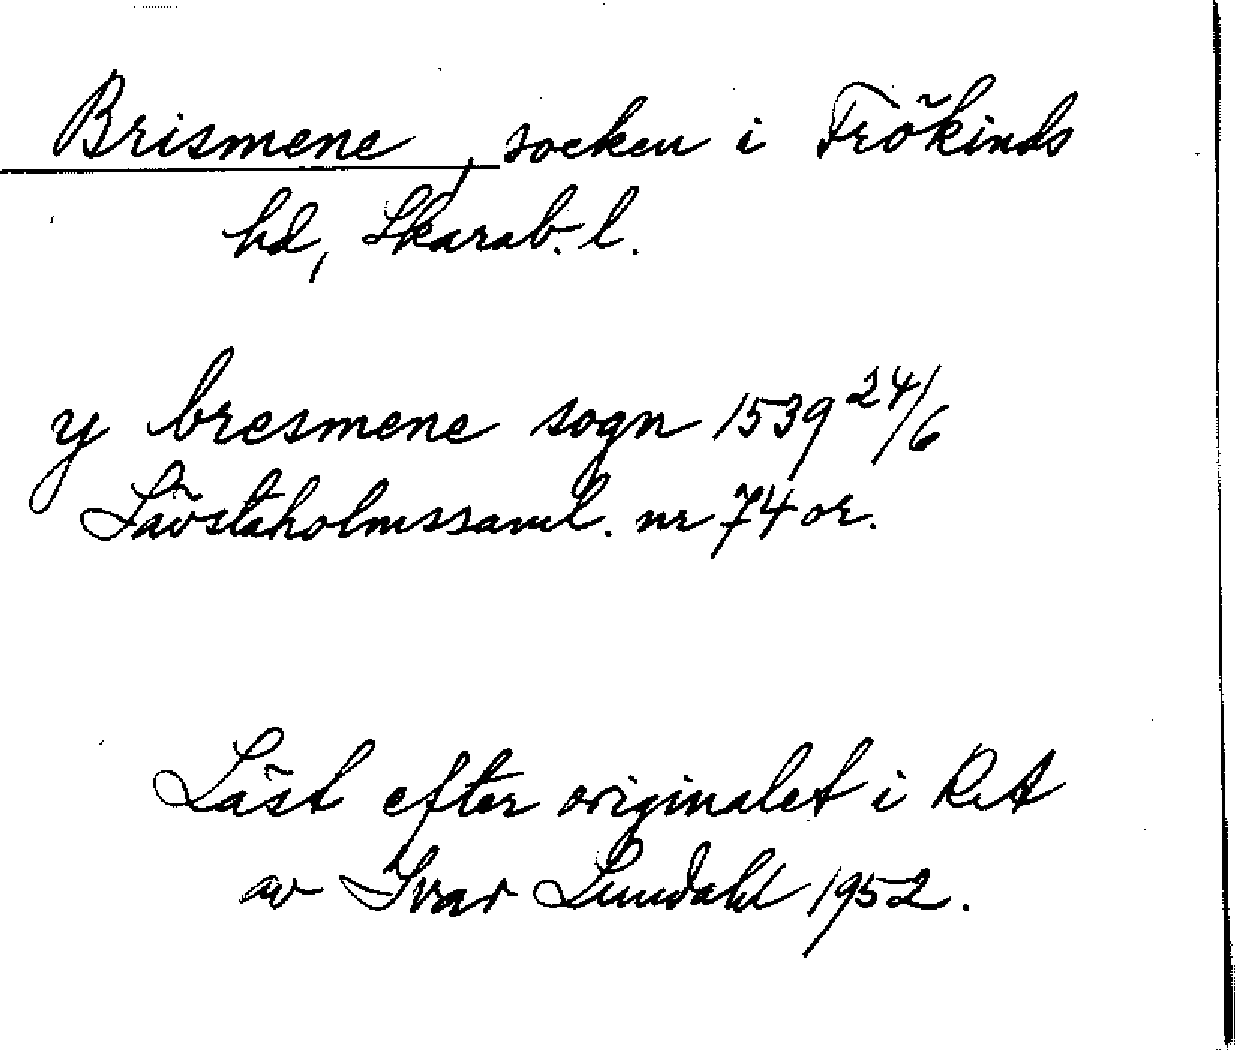 Brismene, socken i Frökinds
hd, Skarab. l.
y bresmene sogn 1539 24/6
Sävstaholmssaml. nr 74 or.
Läst efter originalet i RA
av Ivar Lundahl 1952.